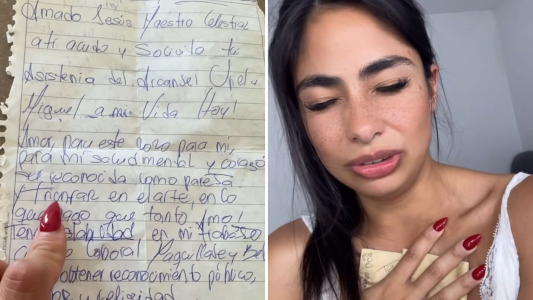 Amado Jesús Maestro Celestial
a ti acudo y Solicito tu
Asistencia del Arcangel Uriel y
Miguel a mi Vida Hoy!
Amor, paz este 2020 para mi,
para mi salud mental y corazó
Ser reconocida como
y Triunfar en el arte, en lo
que hago que tanto Amo!
Tener en mi trabajo
laboral
obtener reconocimiento público,
y felicidad